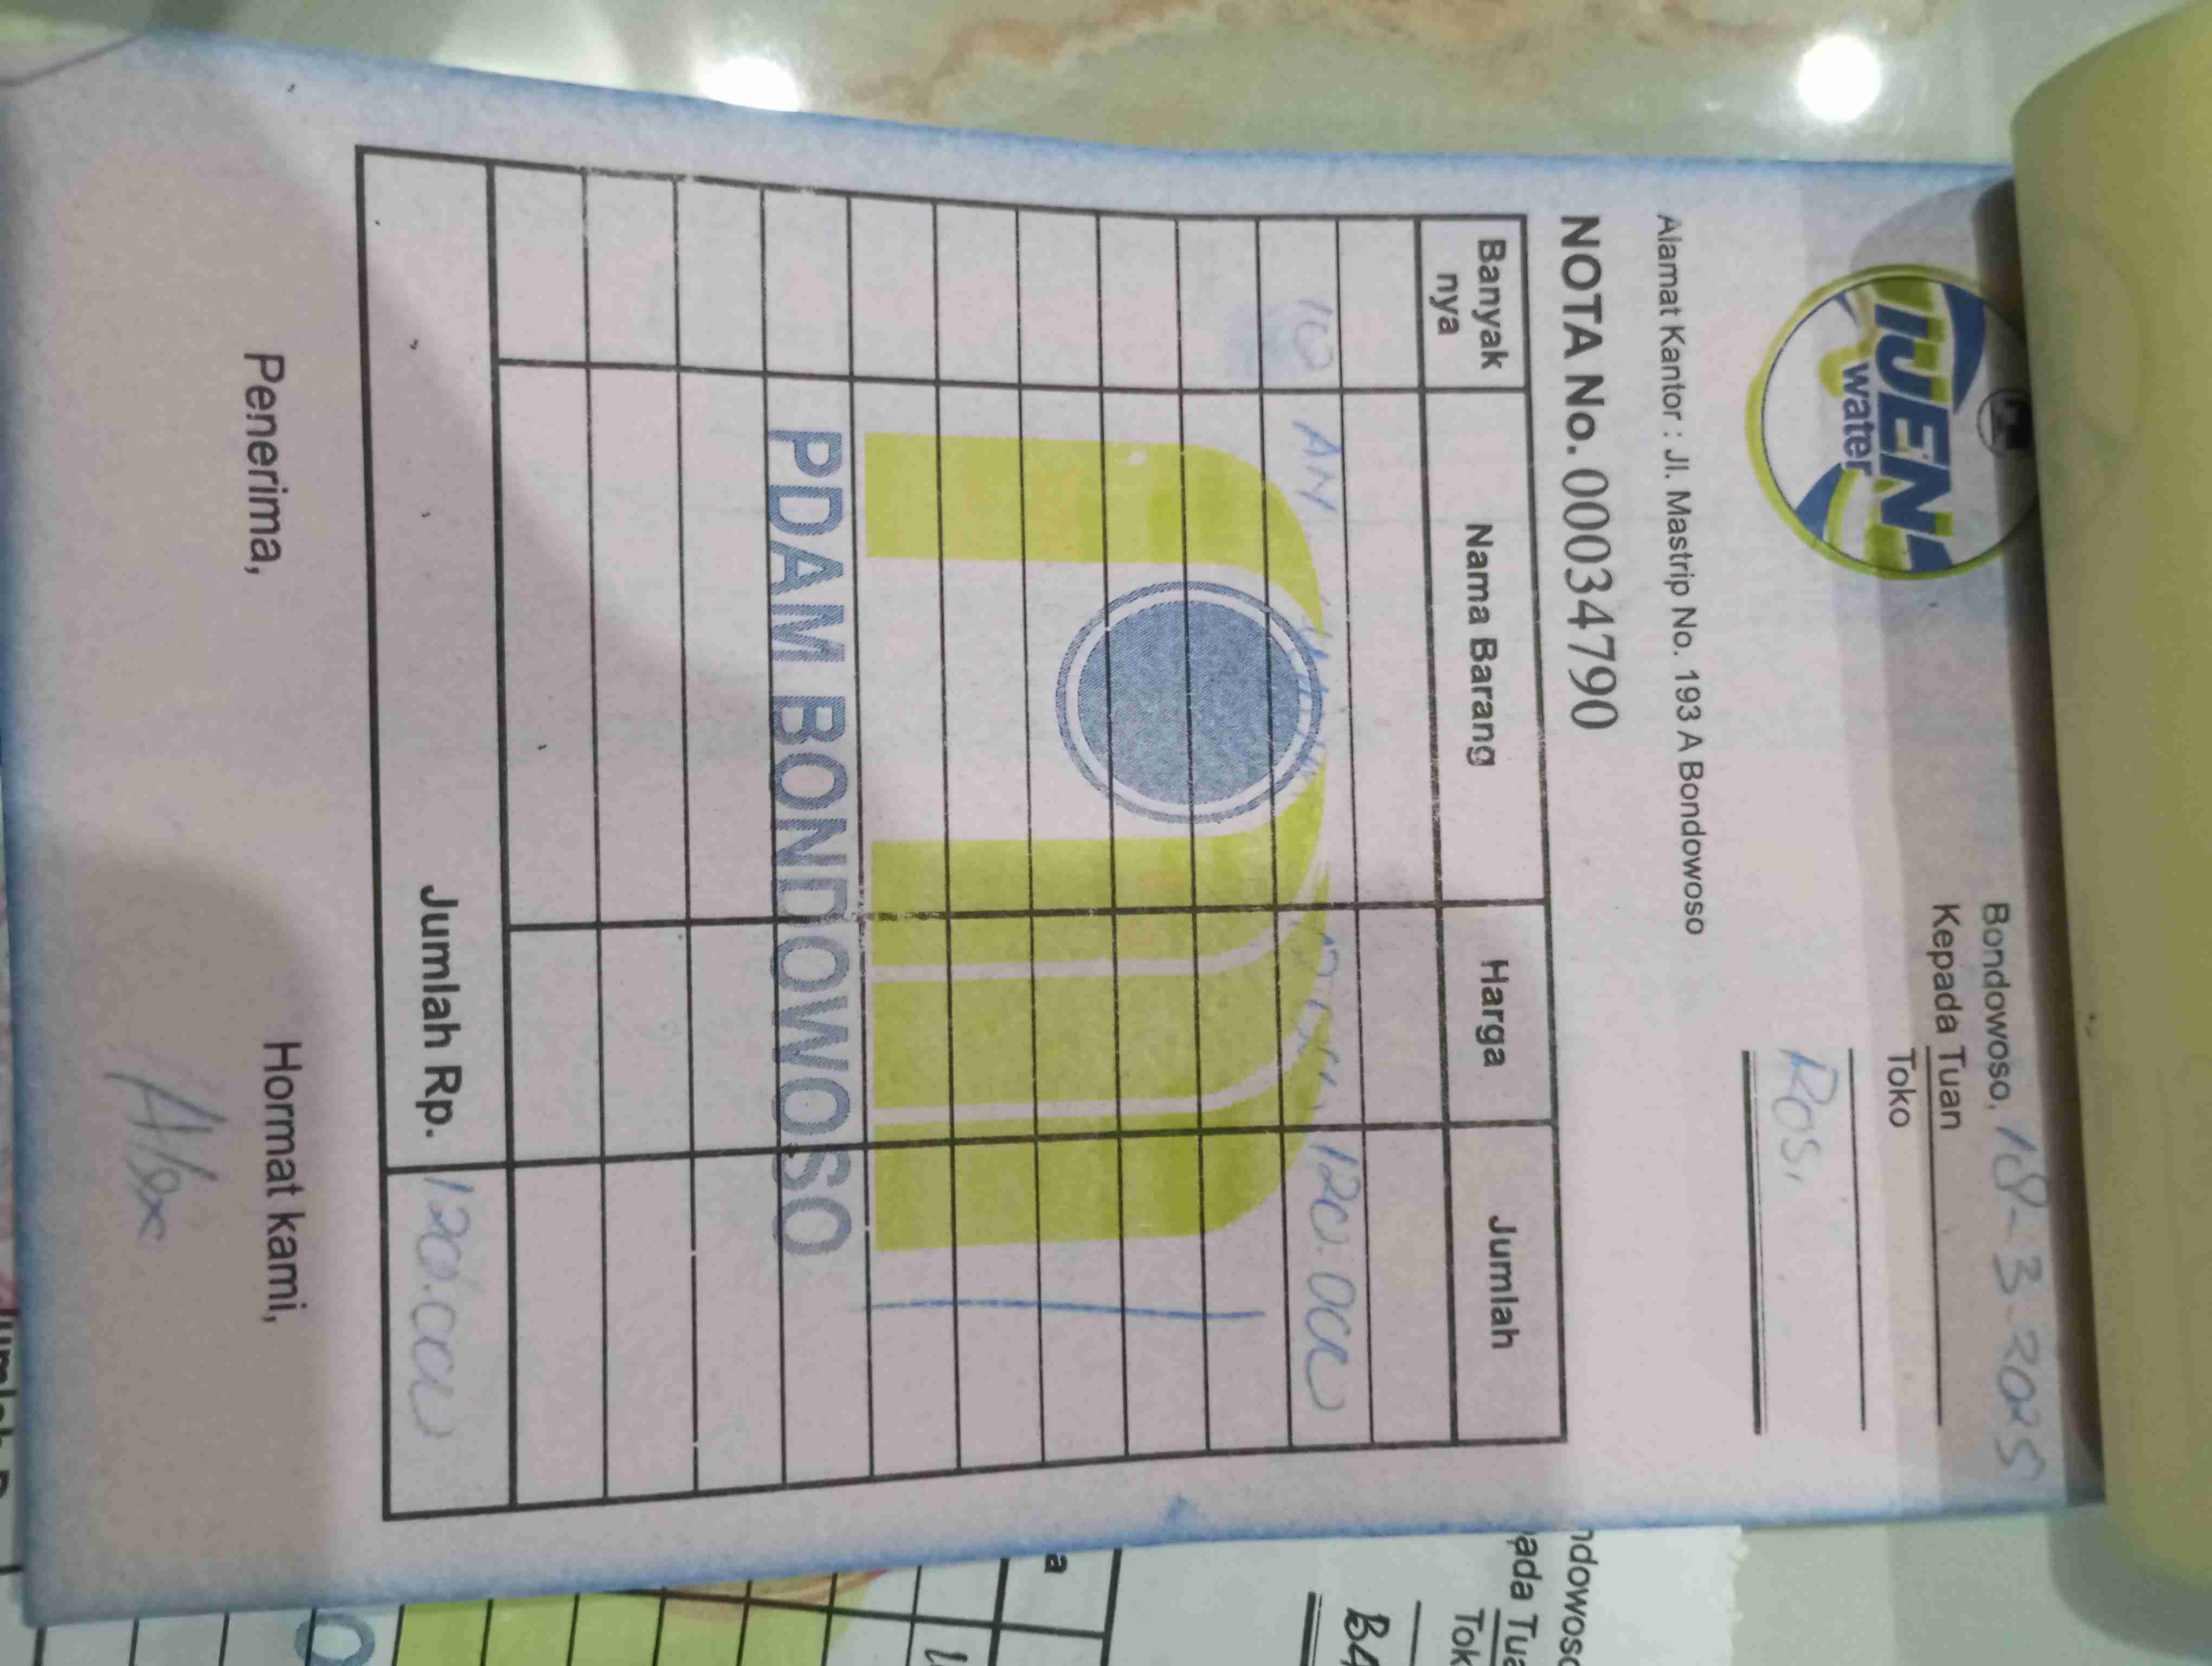 IJEN
water
Bondowoso, 18-3-2025
Kepada Tuan
Toko
Rosi
Alamat Kantor : Jl. Mastrip No. 193 A Bondowoso
NOTA No. 00034790
Banyak nya Nama Barang Harga Jumlah
10 AM 120.000
PDAM BONDOWOSO
Jumlah Rp. 120.000
Penerima, Hormat kami,
Alex
ndowoso
pada Tua
Tok
BA
a